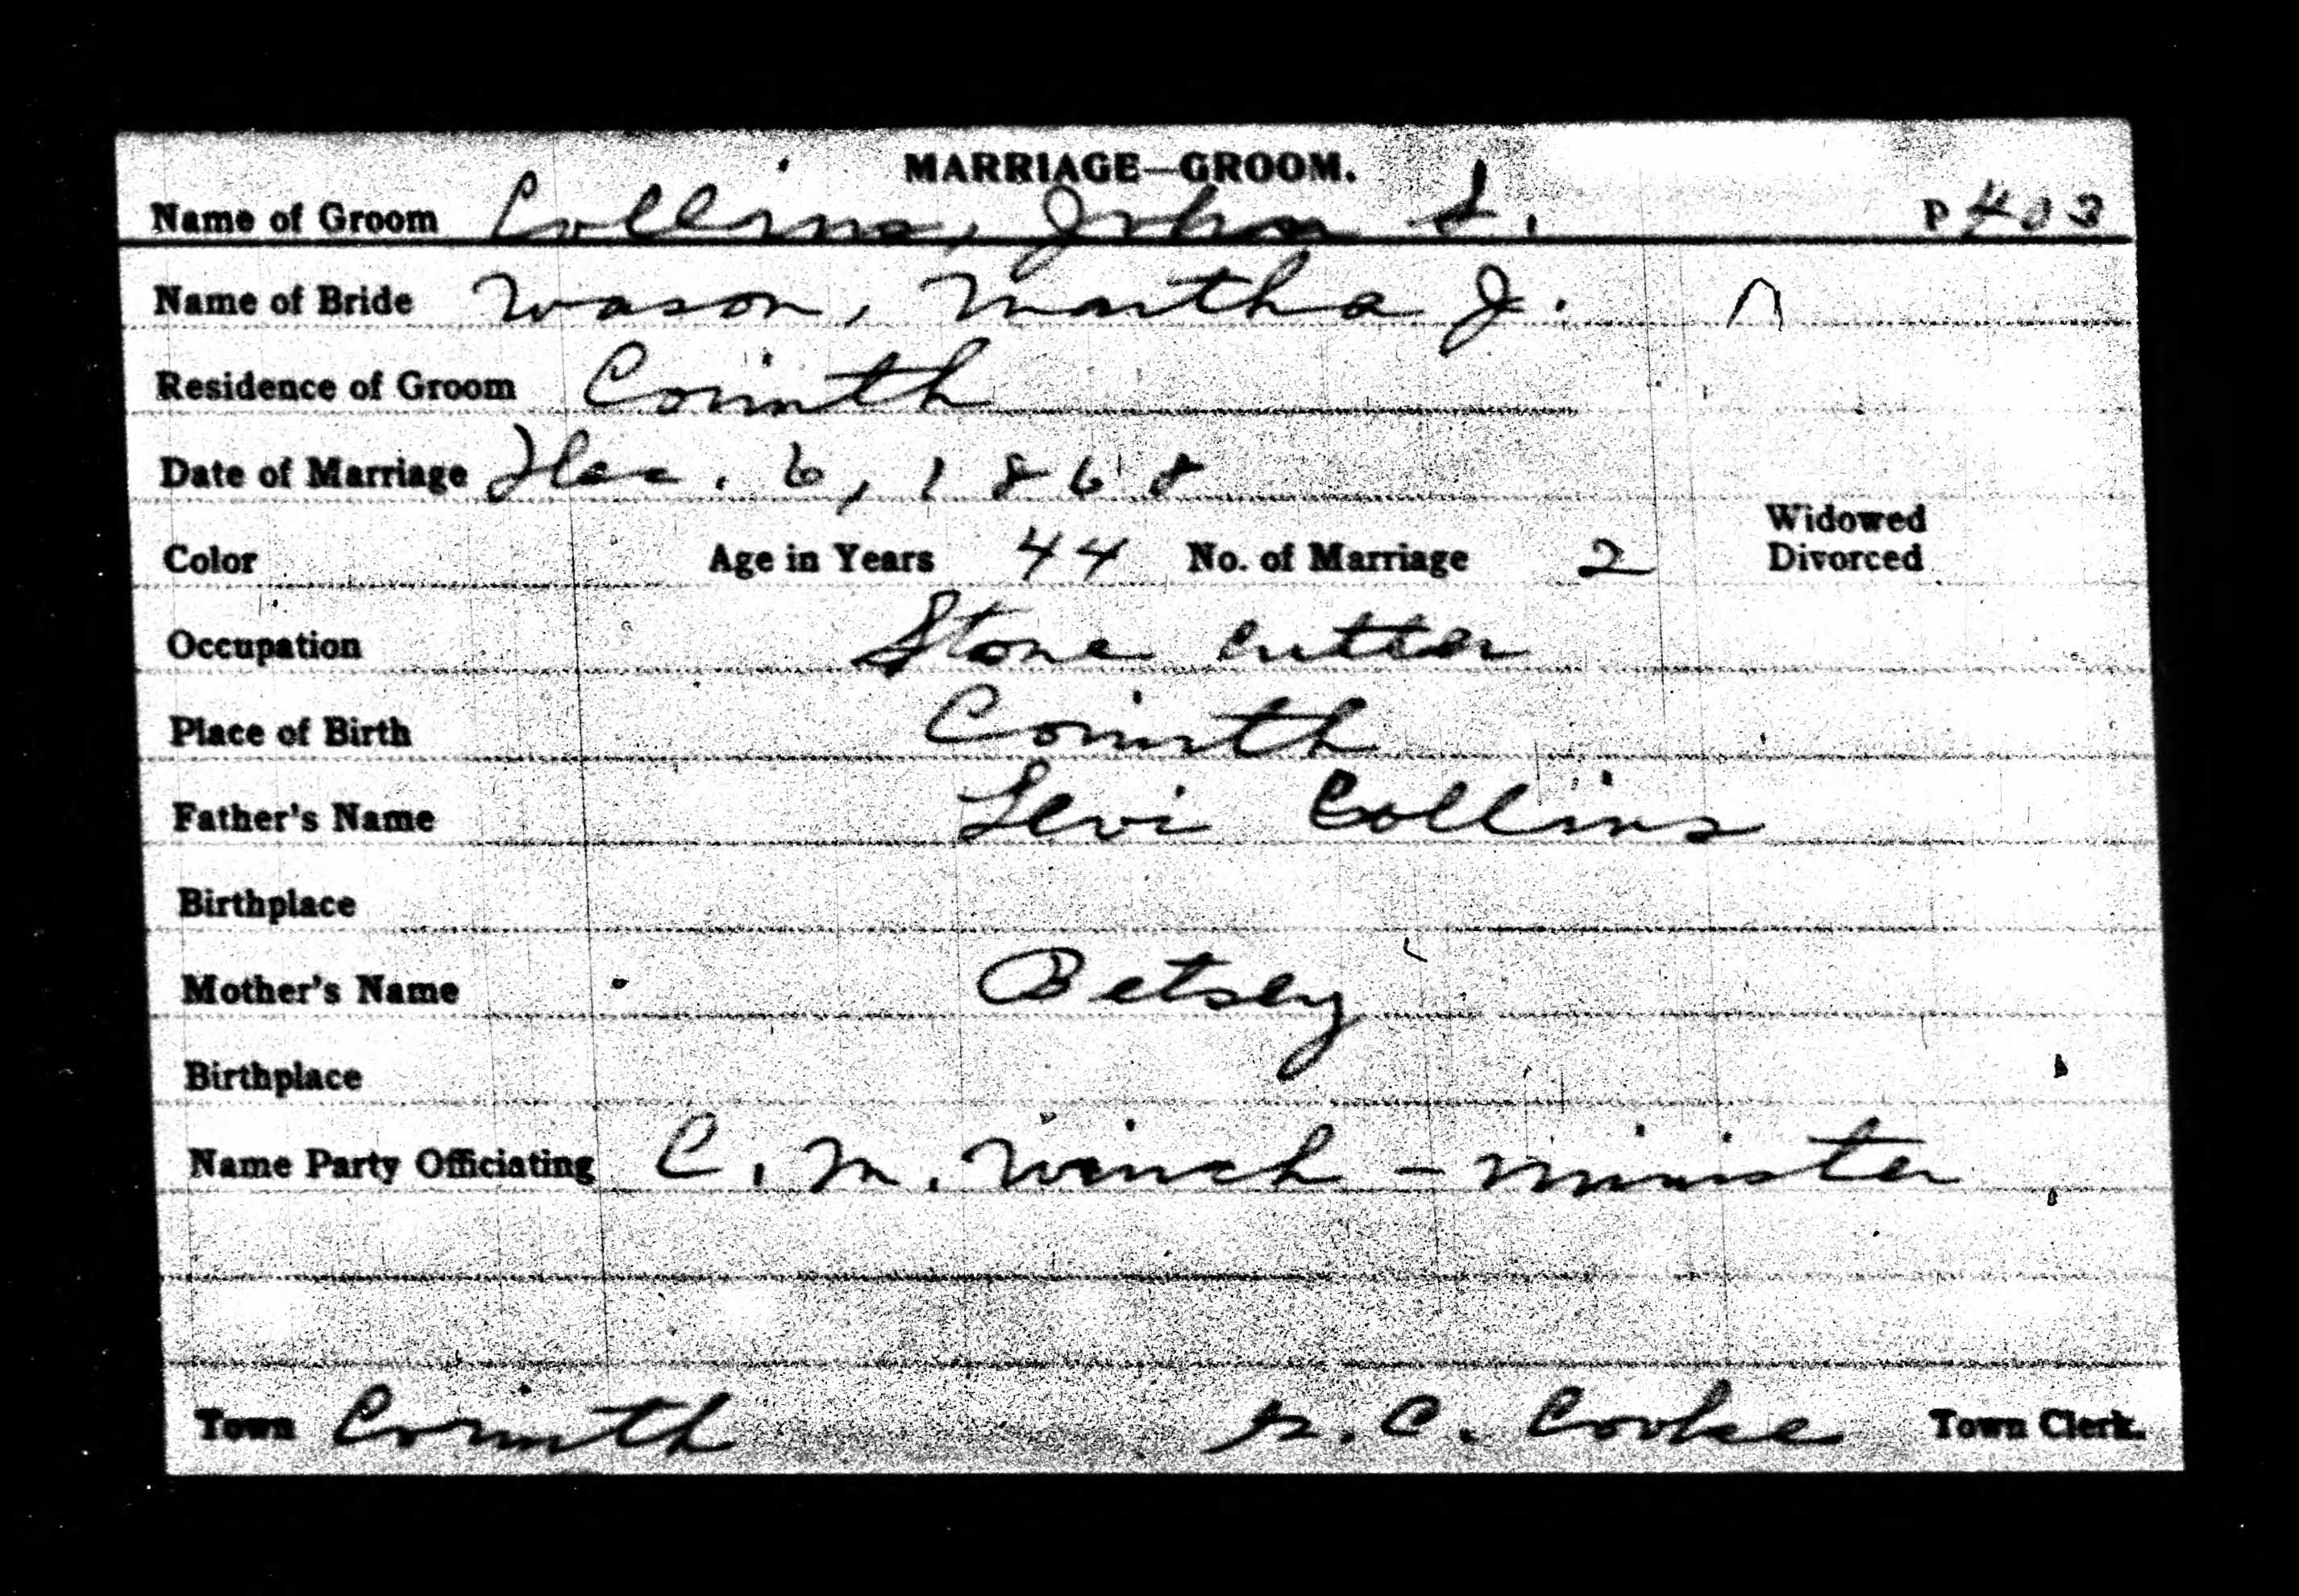 MARRIAGE—GROOM.
Name of Groom Collins, John L. P 403
Name of Bride Wason, Martha J.
Residence of Groom Corinth
Date of Marriage Dec. 6, 1868
Color Age in Years 44 No. of Marriage 2 Widowed Divorced
Occupation Stone cutter
Place of Birth Corinth
Father's Name Levi Collins
Birthplace
Mother's Name Betsey
Birthplace
Name Party Officiating C. M. Winch - minister
Town Corinth C. Cooke Town Clerk.